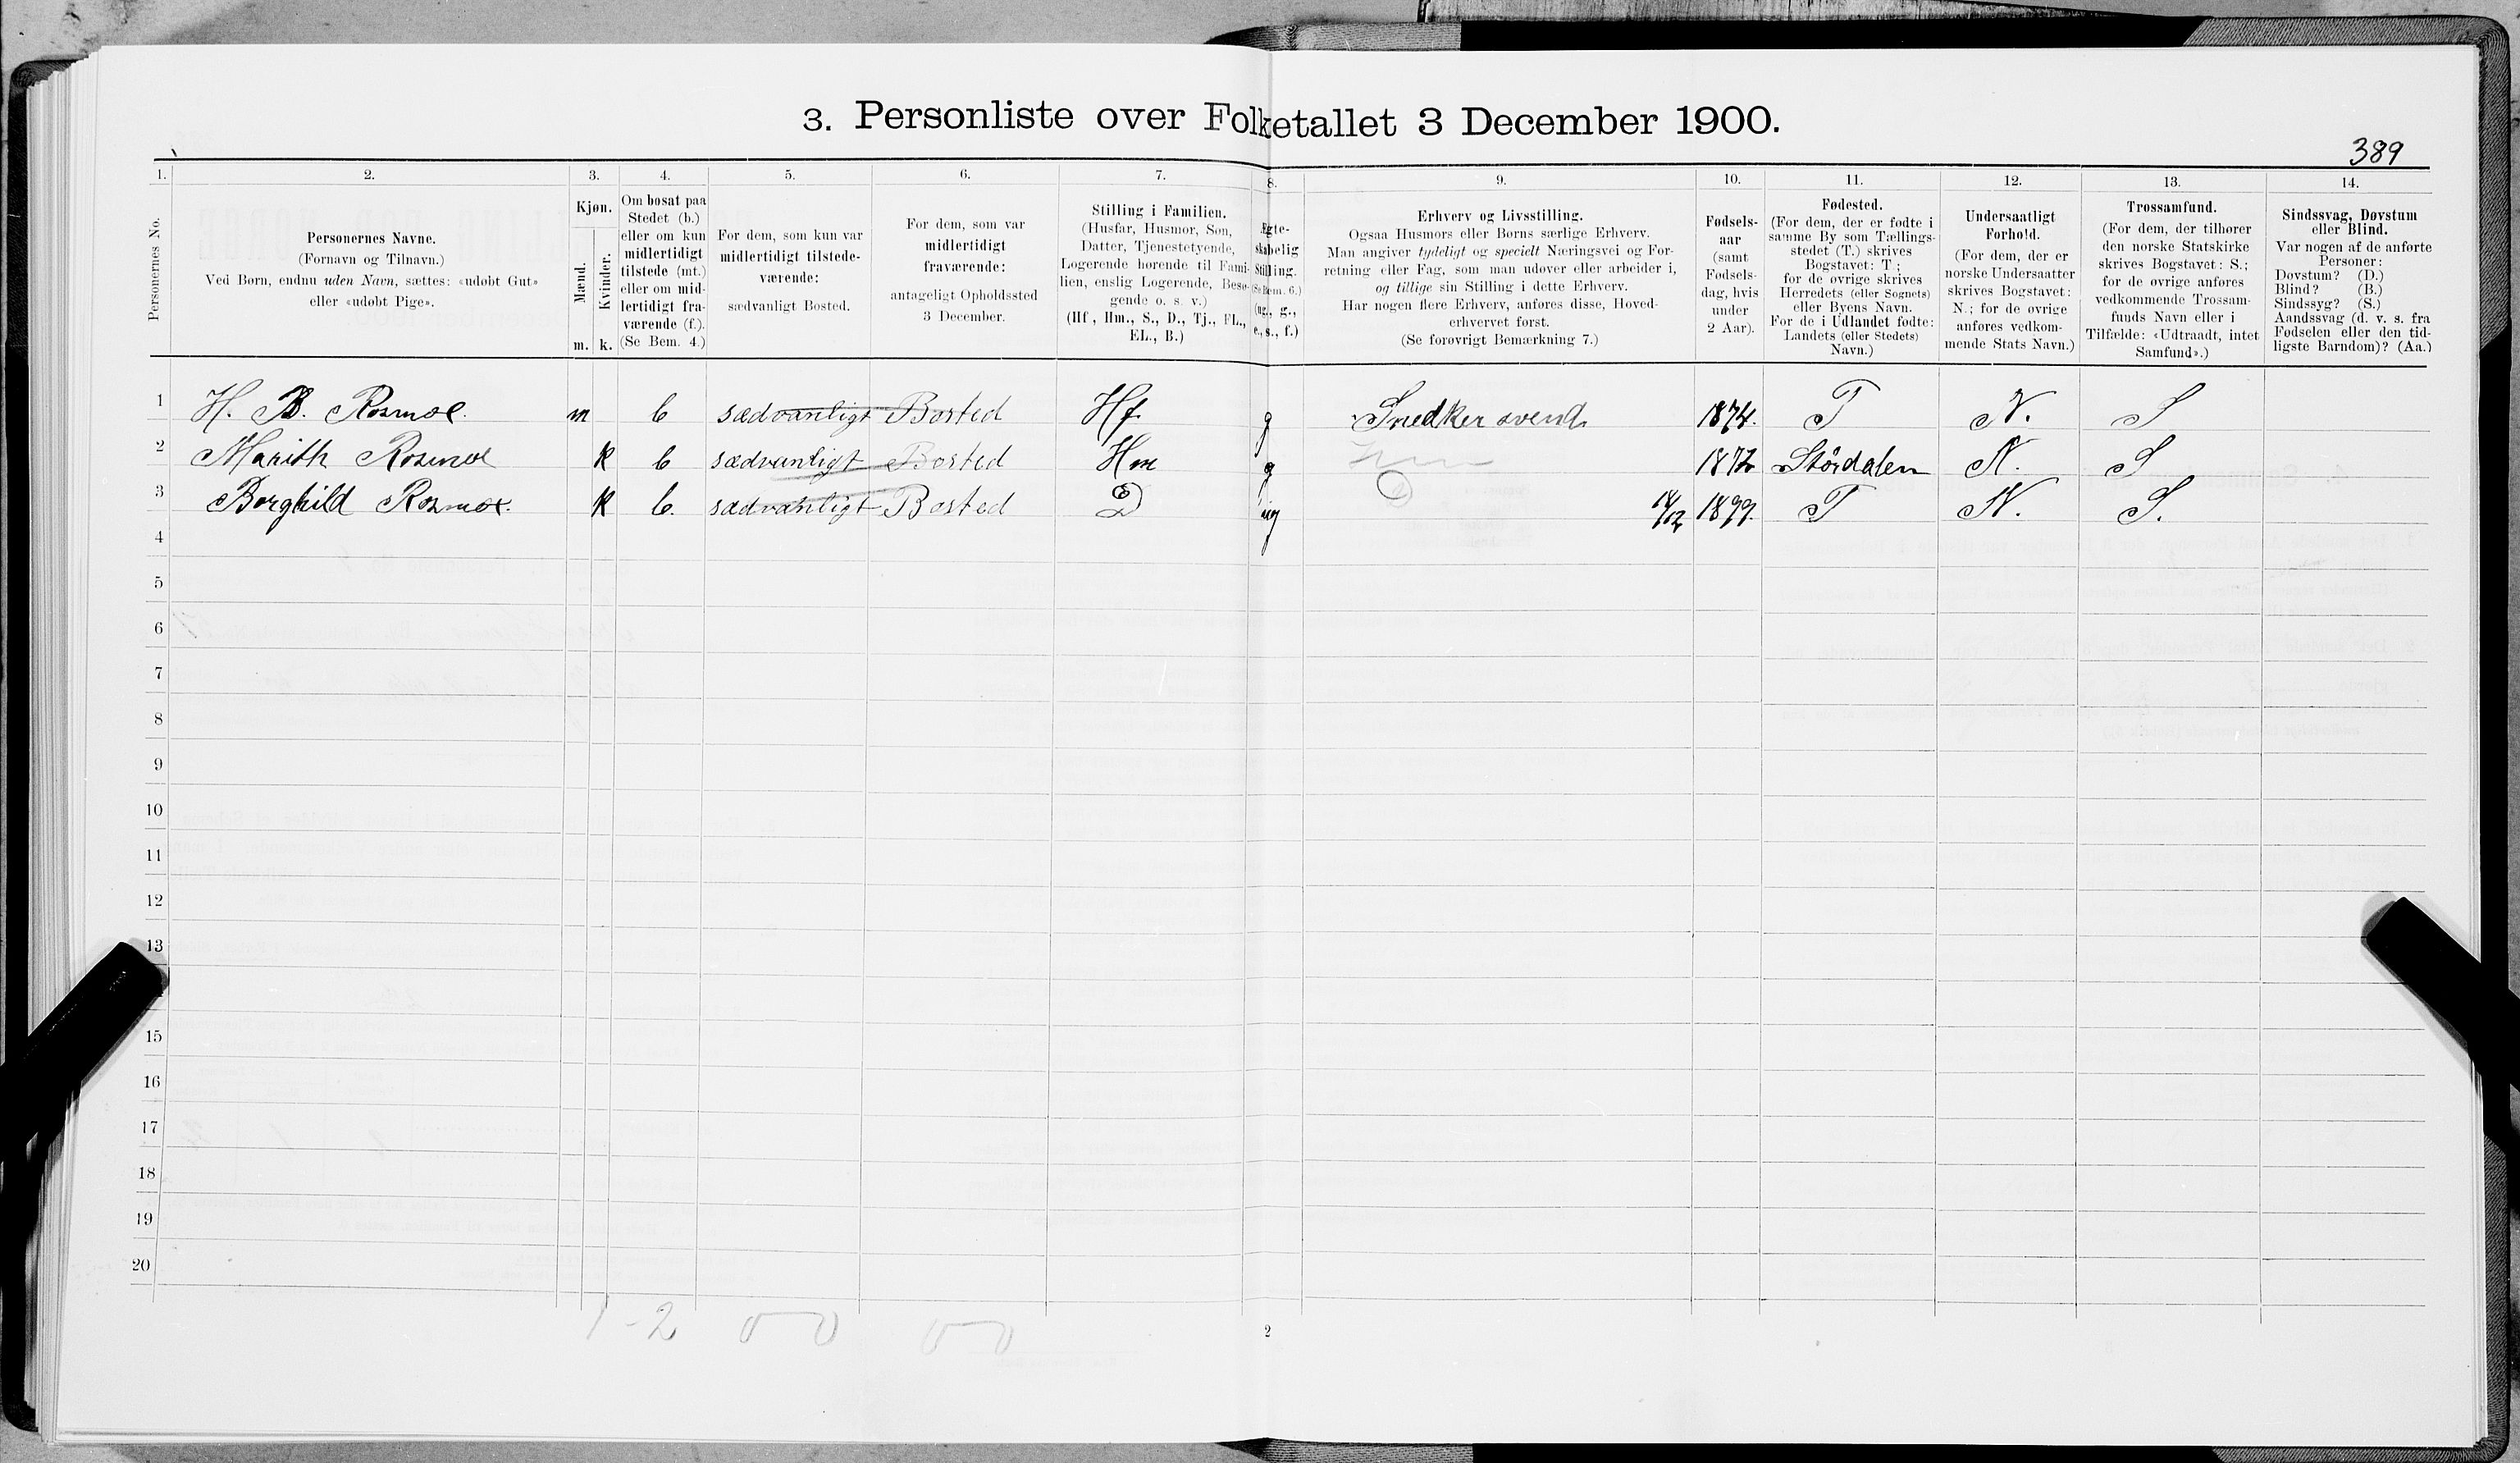 3. Personliste over Folketallet 3 December 1900.
389
1. 2. 3. 4. 5. 6. 7. 8. 9. 10. 11. 12. 13. 14.
Personernes No.
Personernes Navne.
(Fornavn og Tilnavn.)
Ved Børn, endnu uden Navn, sættes: «udøbt Gut»
eller «udøbt Pige».
Kjøn.
Mænd.
Kvinder.
m. k.
Om bosat paa
Stedet (b.)
eller om kun
midlertidigt
tilstede (mt.)
eller om mid-
lertidigt fra-
værende (f.).
(Se Bem. 4.)
For dem, som kun var
midlertidigt tilstede-
værende:
sædvanligt Bosted.
For dem, som var
midlertidigt
fraværende:
antageligt Opholdssted
3 December.
Stilling i Familien.
(Husfar, Husmor, Søn,
Datter, Tjenestetyende,
Logerende hørende til Fami-
lien, enslig Logerende, Besø-
gende o. s. v.)
(Hf., Hm., S., D., Tj., FL.,
EL., B.)
Ægte-
skabelig
Stilling.
(Se Bem. 6.)
(ug., g.,
e., s., f.)
Erhverv og Livsstilling.
Ogsaa Husmors eller Børns særlige Erhverv.
Man angiver tydeligt og specielt Næringsvei og For-
retning eller Fag, som man udøver eller arbeider i,
og tillige sin Stilling i dette Erhverv.
Har nogen flere Erhverv, anføres disse, Hoved-
erhvervet først.
(Se forøvrigt Bemærkning 7.)
Fødsels-
aar
(samt
Fødsels-
dag, hvis
under
2 Aar).
Fødested.
(For dem, der er fødte i
samme By som Tællings-
stedet (T.) skrives
Bogstavet: T;
for de øvrige skrives
Herredets (eller Sognets)
eller Byens Navn.
For de i Udlandet fødte:
Landets (eller Stedets)
Navn.)
Undersaatligt
Forhold.
(For dem, der er
norske Undersaatter
skrives Bogstavet:
N.; for de øvrige
anføres vedkom-
mende Stats Navn.)
Trossamfund.
(For dem, der tilhører
den norske Statskirke
skrives Bogstavet: S.;
for de øvrige anføres
vedkommende Trossam-
funds Navn eller i
Tilfælde: «Udtraadt, intet
Samfund».)
Sindssvag, Døvstum
eller Blind.
Var nogen af de anførte
Personer:
Døvstum? (D.)
Blind? (B.)
Sindssyg? (S.)
Aandssvag (d. v. s. fra
Fødselen eller den tid-
ligste Barndom)? (Aa.)
1 H. B. Rosmoe. m b sædvanligt Bosted Hf g Snedker svend 1874. T N. S
2 Marith Rosmoe k b sædvanligt Bosted Hm g 1872 Stördalen N. S
3 Borghild Rosmoe. k b. sædvanligt Bosted D ug 1899. T N. S.
4
5
6
7
8
9
10
11
12
13
15
16
17
18
19
20
1-2 0 0 0 0
2